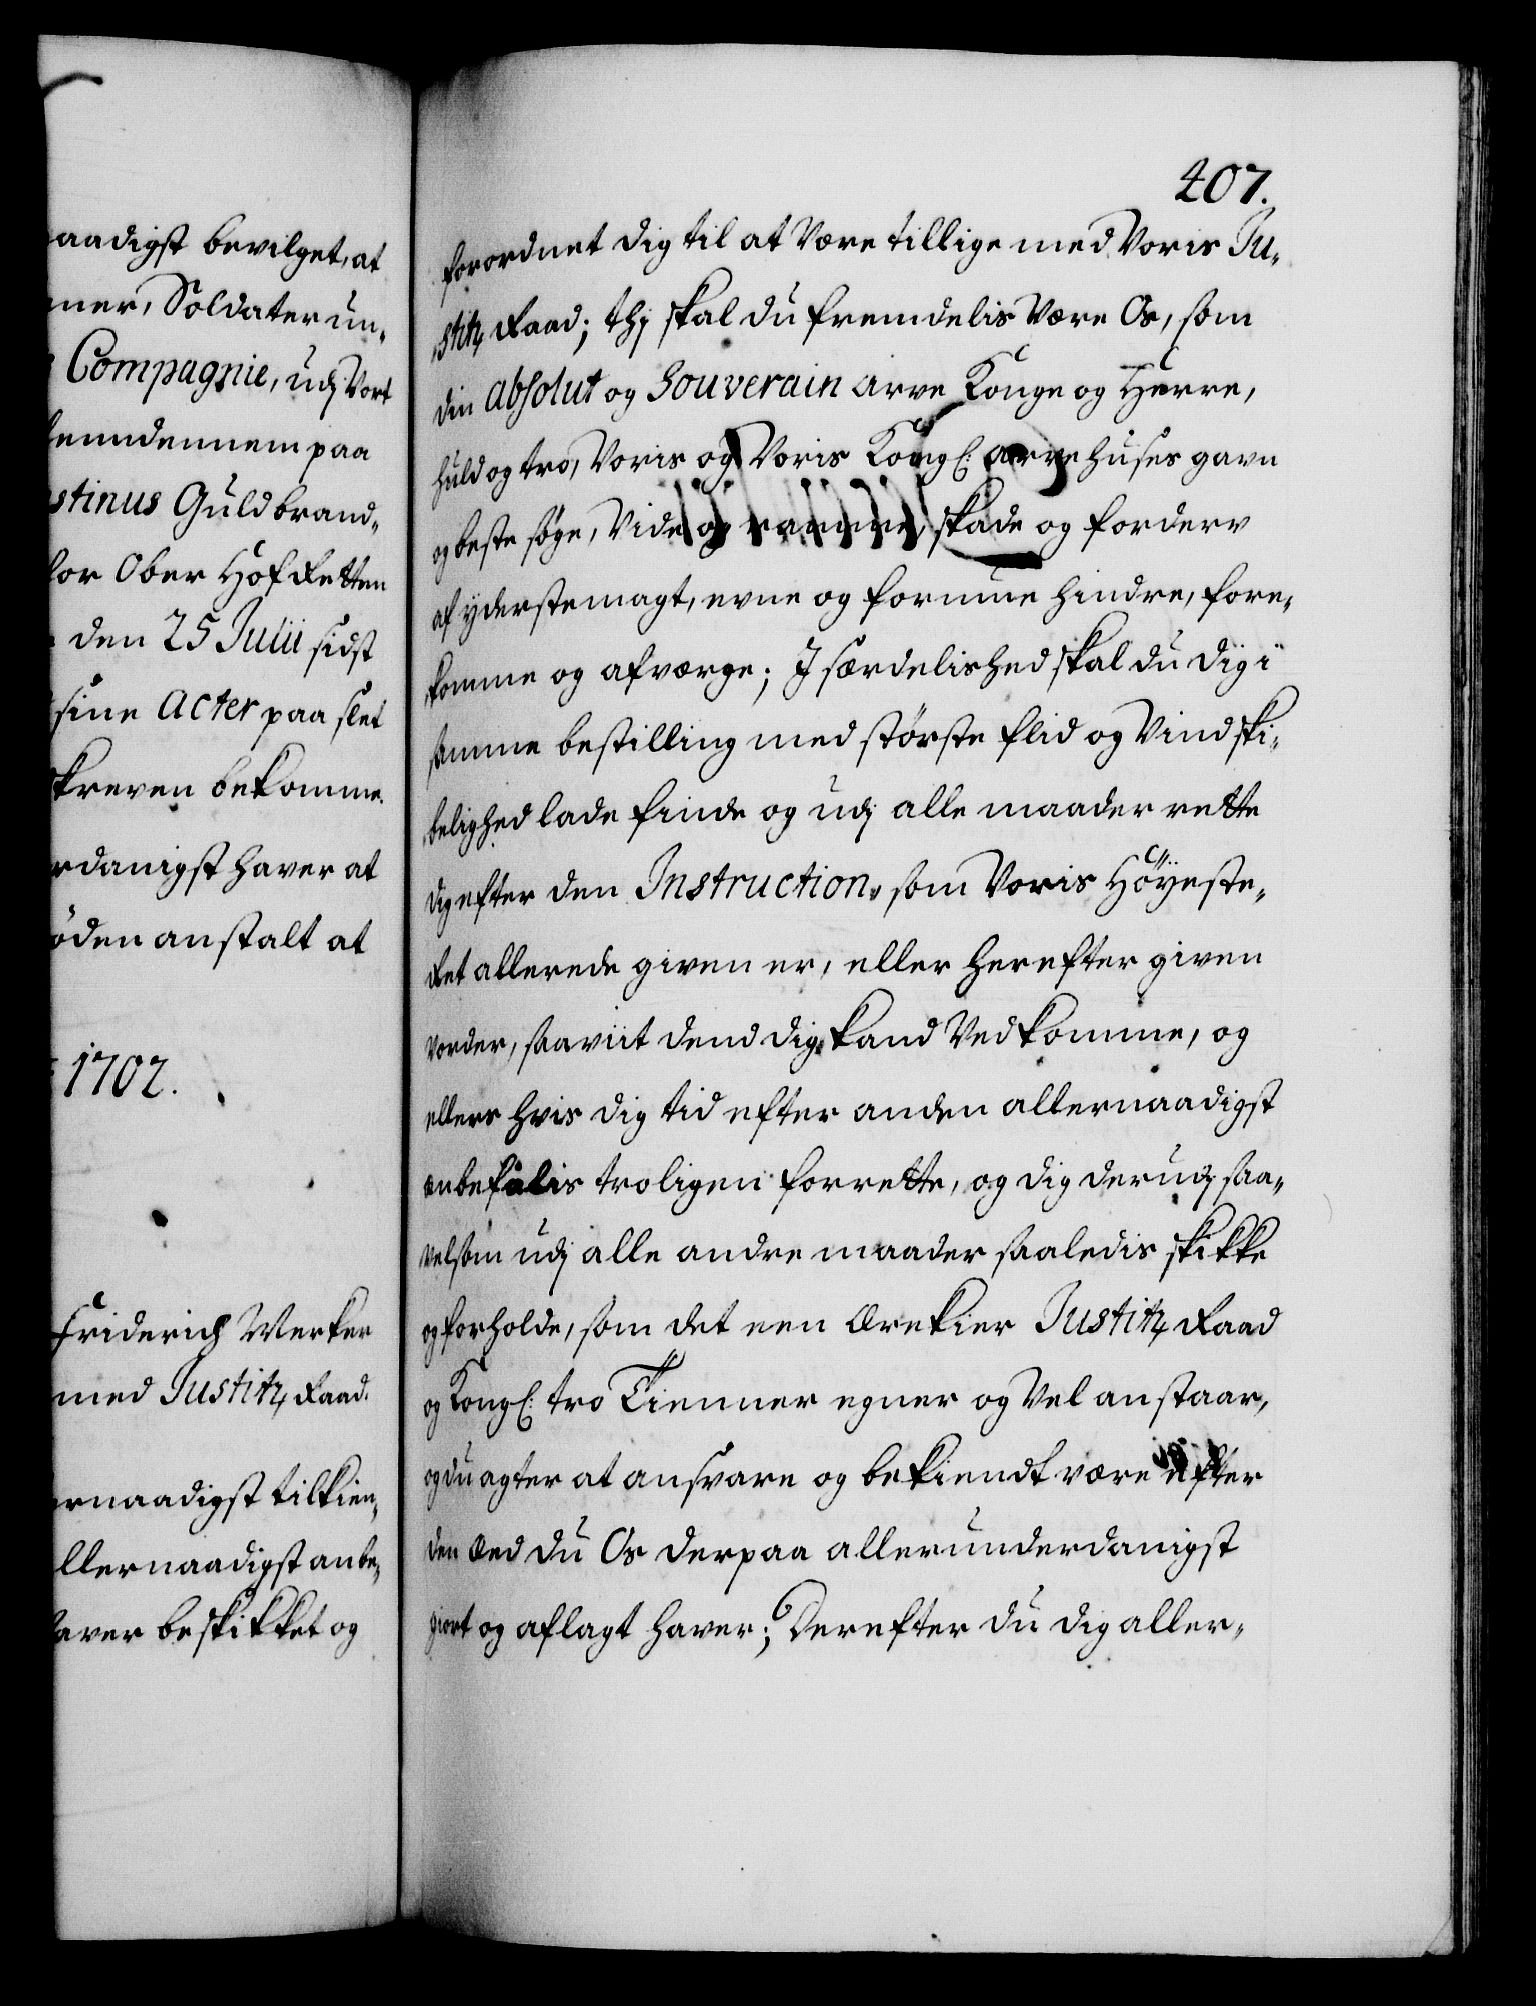 aadigst bevilget, at
ner, Soldater un-
Compagnie, udj Vort
denndennem paa
stinus Guldbrand-
for Ober Hof Retten
den 25 Julii sidst
sine Acter paa slet
skreven bekomme.
rdanigst haver at
øden anstalt at
1702.
Friderich Werker
med Justitz Raad.
ernaadigst tilkien-
llernaadigst anbe-
haver beskikket og
407.
forordnet dig til at Være tillige med Voris Ju-
stitz Raad; thj skal du fremdelis Være Os, som
din absolut og Souverain Arve Konge og Herre,
huld og tro, Voris og Voris Kongl: arvehuses gavn
og beste søge, Vide og ramme, skade og forderv
af yderste magt, evne og formue hindre, fore-
komme og afværge; J særdelished skal du dig i
samme bestilling med største flid og Vindski-
belighed lade finde og udj alle maader rette
dig efter den Instruction, som Voris Höyeste-
Ret allerede given er, eller herefter given
vorder, saaviit dend dig kand Vedkomme, og
ellers hvis dig tid efter anden allernaadigst
anbefalis troligen forrette, og dig derudj saa-
velsom udj alle andre maader saaledis skikke
og forholde, som det een ærekier Justitz Raad
og Kongl: tro Tienner egner og Vel anstaar,
og du agter at ansvare og bekiendt være efter
den Eed du Os derpaa allerunderdanigst
giort og aflagt haver; Derefter du dig aller-